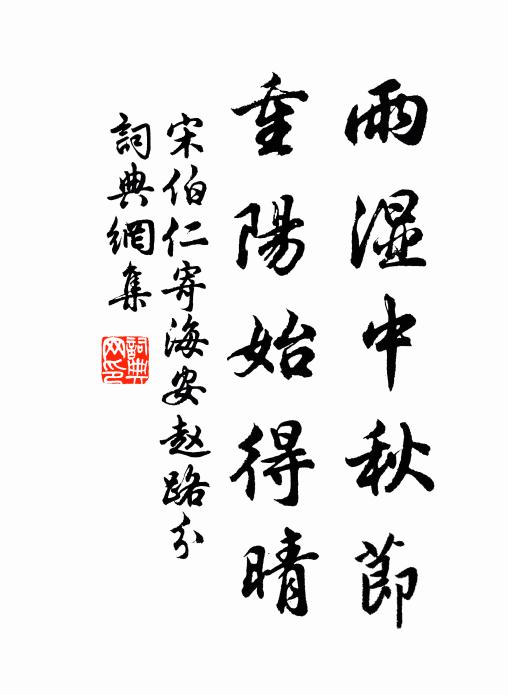 雨湿中秋節
重陽始得晴
宋伯仁寄海安赵路分
詞典網集
詞典网印